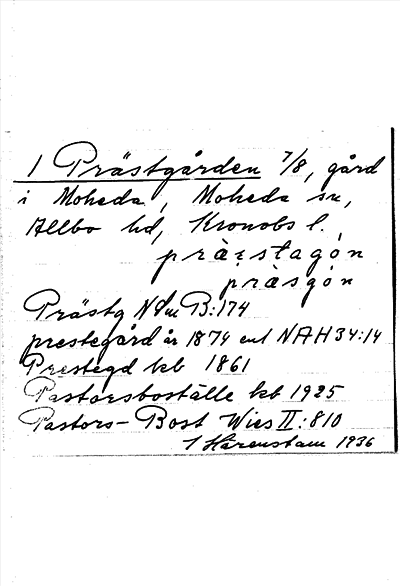 1 Prästgården 7/8, gård
i Moheda, Moheda sn,
Allbo hd, Kronobs l.
prä̀stagón
prä̀sgón
Prästg B:174
prestegård år 1874 enl NAH 34:14
Prestegd kb 1861
Pastorsboställe kb 1925
Pastors-Bost Wies II:810
1936